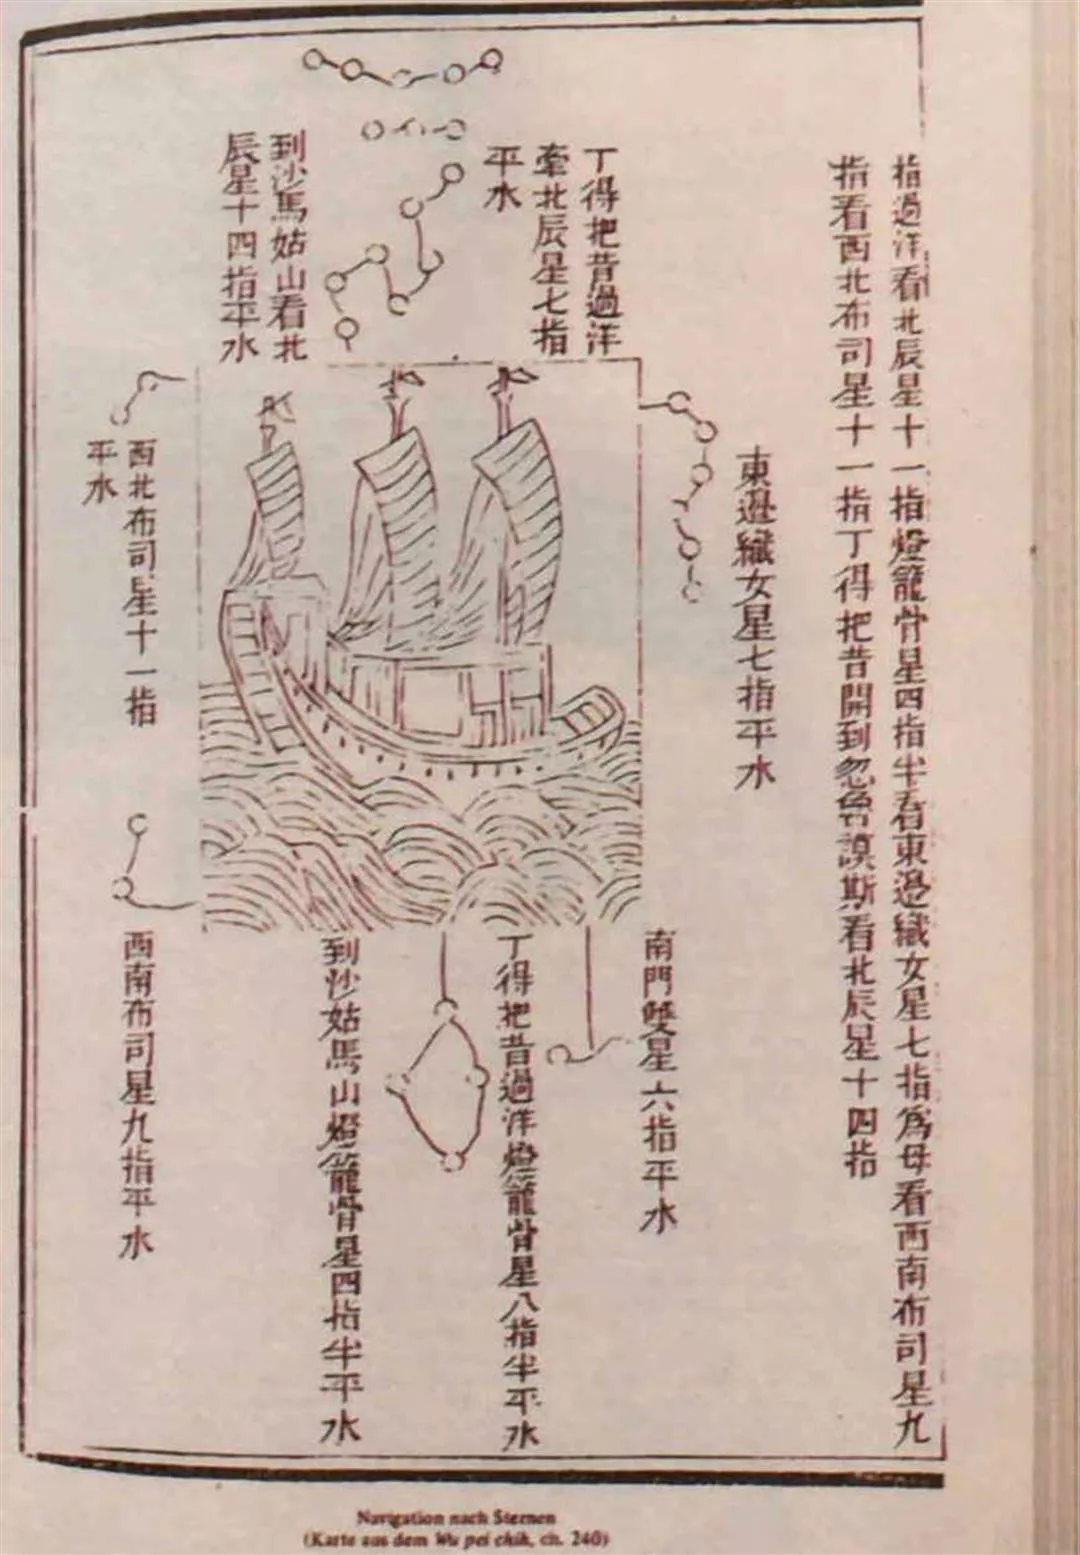 指過洋看北辰星十一指燈籠骨星四指半看東邉織女星七指爲母看西南布司星九
指看西北布司星十一指丁得把昔開到忽魯謨斯看北辰星十四指
東邉織女星七指平水
丁得把昔過洋
牽北辰星七指
平水
到沙馬姑山看北
辰星十四指平水
西北布司星十一指
平水
南門雙星六指平水
丁得把昔過洋燈籠骨星八指半平水
到沙姑馬山燈籠骨星四指半平水
西南布司星九指平水
Navigation nach Sternen
(Karte aus dem Wu pei chih, ch. 240)